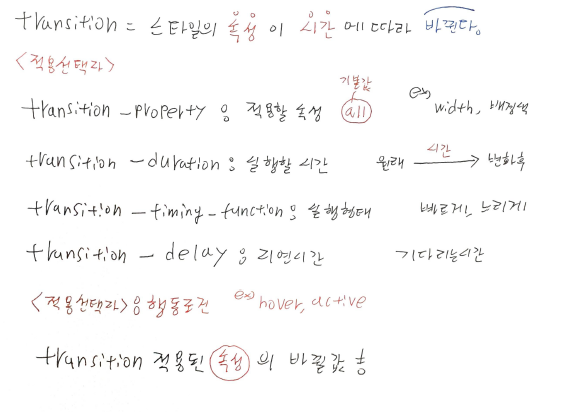 transition = 스타일의 속성 이 시간 에따라 바뀐다.
<적용선택라>
기본값
transition - property : 적용할 속성 all ex) width, 배경색
transition - duration : 실행할 시간 원래 시간 → 변화후
transition - timing - function : 실행형태 빠르게, 느리게
transition - delay : 지연시간 기다리는시간
<적용선택라> : 행동조건 ex) hover, active
transition 적용된 속성 의 바뀔값 :